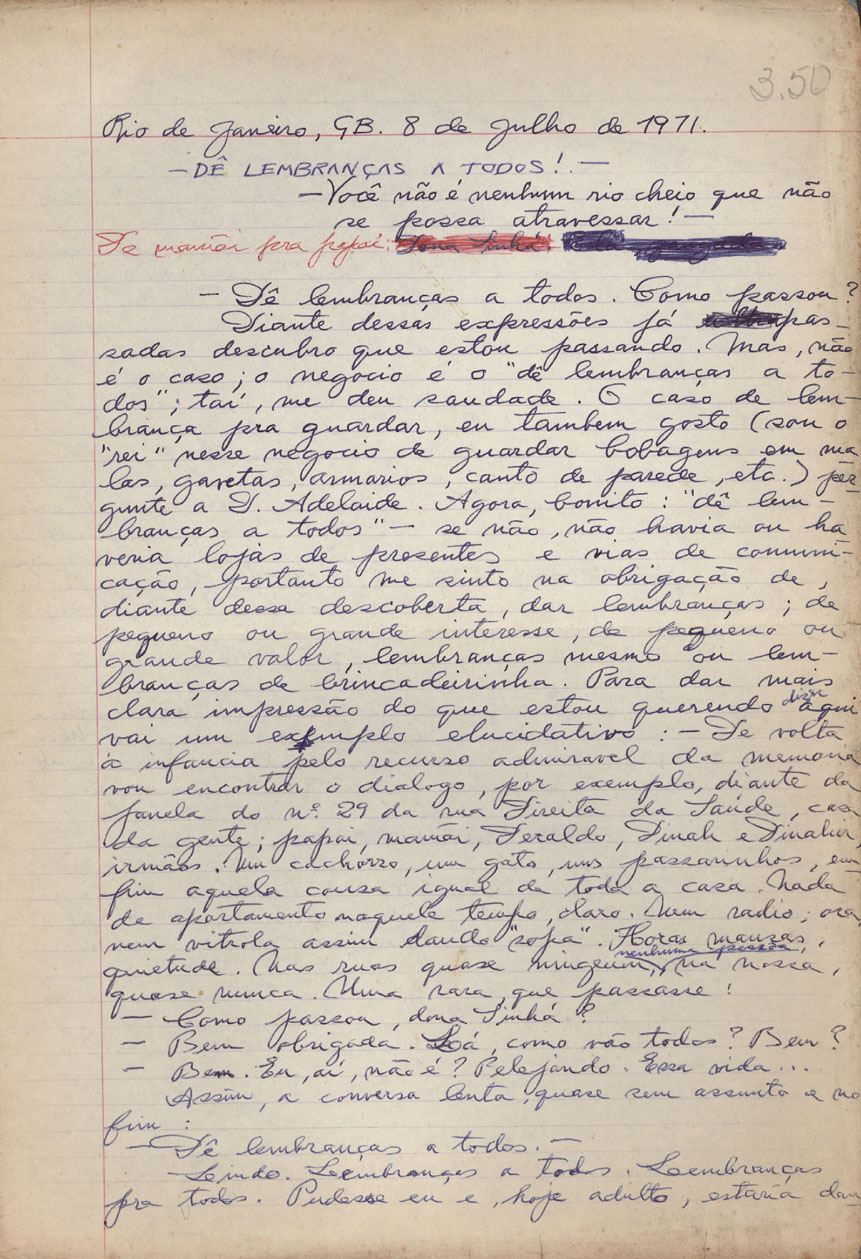 3.50
Rio de Janeiro, GB. 8 de Julho de 1971.
— DÊ LEMBRANÇAS A TODOS! —
— Você não é nenhum rio cheio que não
se possa atravessar! —
De mamãi pra papai. Dona Sinhá.
— Dê lembranças a todos. Como passou?
Diante dessas expressões já pas-
sadas descubro que estou passando. Mas, não
é o caso; o negocio é o "dê lembranças a to-
dos"; taí, me deu saudade. O caso de lem-
brança pra guardar, eu tambem gosto (sou o
"rei" nesse negocio de guardar bobagens em ma
las, gavetas, armarios, canto de parede, etc.) per-
gunte a D. Adelaide. Agora, bonito: "dê lem-
branças a todos" — se não, não havia ou ha
veria lojas de presentes e vias de comuni-
cação, portanto me sinto na obrigação de,
diante dessa descoberta, dar lembranças; de
pequeno ou grande interesse, de pequeno ou
grande valor, lembranças mesmo ou lem-
branças de brincadeirinha. Para dar mais
clara impressão do que estou querendo dizer aqui
vai um exemplo elucidativo: — De volta
à infancia pelo recurso admiravel da memoria
vou encontrar o dialogo, por exemplo, diante da
janela do nº 29 da rua Direita da Saúde, casa
da gente; papai, mamãi, Geraldo, Dinah e
irmãos. Um cachorro, um gato, uns passarinhos, en-
fim aquela cousa igual de toda a casa. Nada
de apartamento naquele tempo, claro. Nem radio; ora,
nem vitrola assim dando "sopa". Horas mansas,
quietude. Nas ruas quase ninguem, nenhuma pessoa, na nossa,
quase nunca. Uma rara, que passasse!
— Como passou, dona Sinhá?
— Bem obrigada. Lá, como vão todos? Bem?
— Bem. Eu, aí, não é? Pelejando. Essa vida...
Assim, a conversa lenta, quase sem assunto e no
fim:
— Dê lembranças a todos. —
Lindo. Lembranças a todos. Lembranças
pra todos. Pudesse eu e, hoje adulto, estaria dan